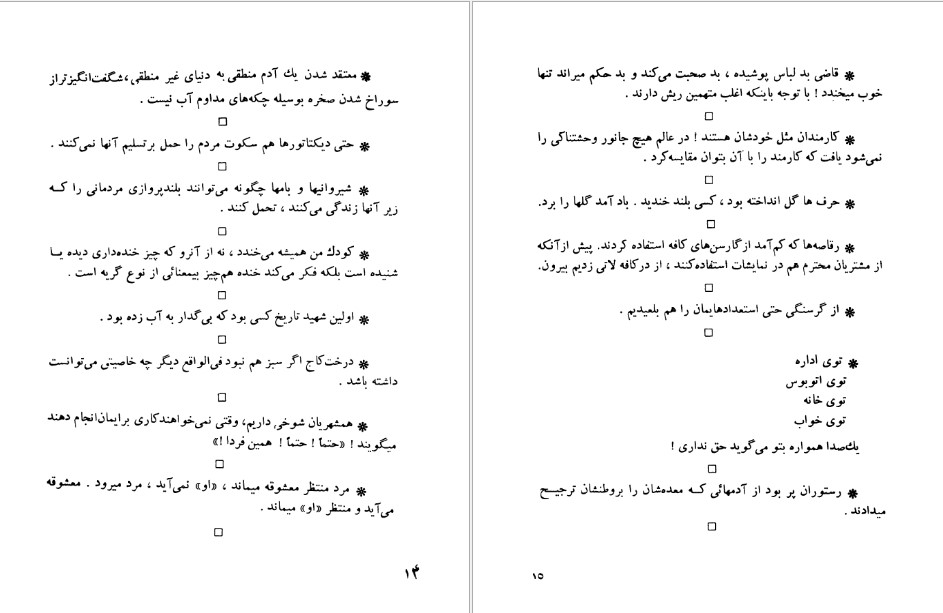 ❋ معتقد شدن یك آدم منطقی به دنیای غیر منطقی، شگفت‌انگیزتر از
سوراخ شدن صخره بوسیله چکه‌های مداوم آب نیست .
□
❋ حتی دیکتاتورها هم سکوت مردم را حمل برتسلیم آنها نمی‌کنند .
□
❋ شیروانیها و بامها چگونه می‌توانند بلندپروازی مردمانی را کـه
زیر آنها زندگی می‌کنند ، تحمل کنند .
□
❋ کودك من همیشه می‌خندد ، نه از آنرو که چیز خنده‌داری دیده یـا
شنیده است بلکه فکر می‌کند خنده هم‌چیز بیمعنائی از نوع گریه است .
□
❋ اولین شهید تاریخ کسی بود که بی‌گدار به آب زده بود .
□
❋ درخت‌کاج اگر سبز هم نبود فی‌الواقع دیگر چه خاصیتی می‌توانست
داشته باشد .
□
❋ همشهریان شوخی داریم، وقتی نمی‌خواهندکاری برایمان‌انجام دهند
میگویند ! «حتماً ! حتماً ! همین فردا !»
□
❋ مرد منتظر معشوقه میماند ، «او» نمی‌آید ، مرد میرود . معشوقه
می‌آید و منتظر «او» میماند .
□
۱۴
❋ قاضی بد لباس پوشیده ، بد صحبت می‌کند و بد حکم میراند تنها
خوب میخندد ! با توجه باینکه اغلب متهمین ریش دارند .
□
❋ کارمندان مثل خودشان هستند ! در عالم هیچ جانور وحشتناکی را
نمی‌شود یافت که کارمند را با آن بتوان مقایسه‌کرد .
□
❋ حرف ها گل انداخته بود ، کسی بلند خندید . باد آمد گلها را برد.
□
❋ رقاصه‌ها که کم‌آمد ازگارسن‌های کافه استفاده کردند. پیش ازآنکه
از مشتریان محترم هم در نمایشات استفاده‌کنند ، از درکافه لاتی زدیم بیرون.
□
❋ از گرسنگی حتی استعدادهایمان را هم بلعیدیم .
□
❋ توی اداره
توی اتوبوس
توی خانه
توی خواب
یك‌صدا همواره بتو می‌گوید حق نداری !
□
❋ رستوران پر بود از آدمهائی کـه معده‌شان را بروطنشان ترجیـح
میدادند .
□
۱۵